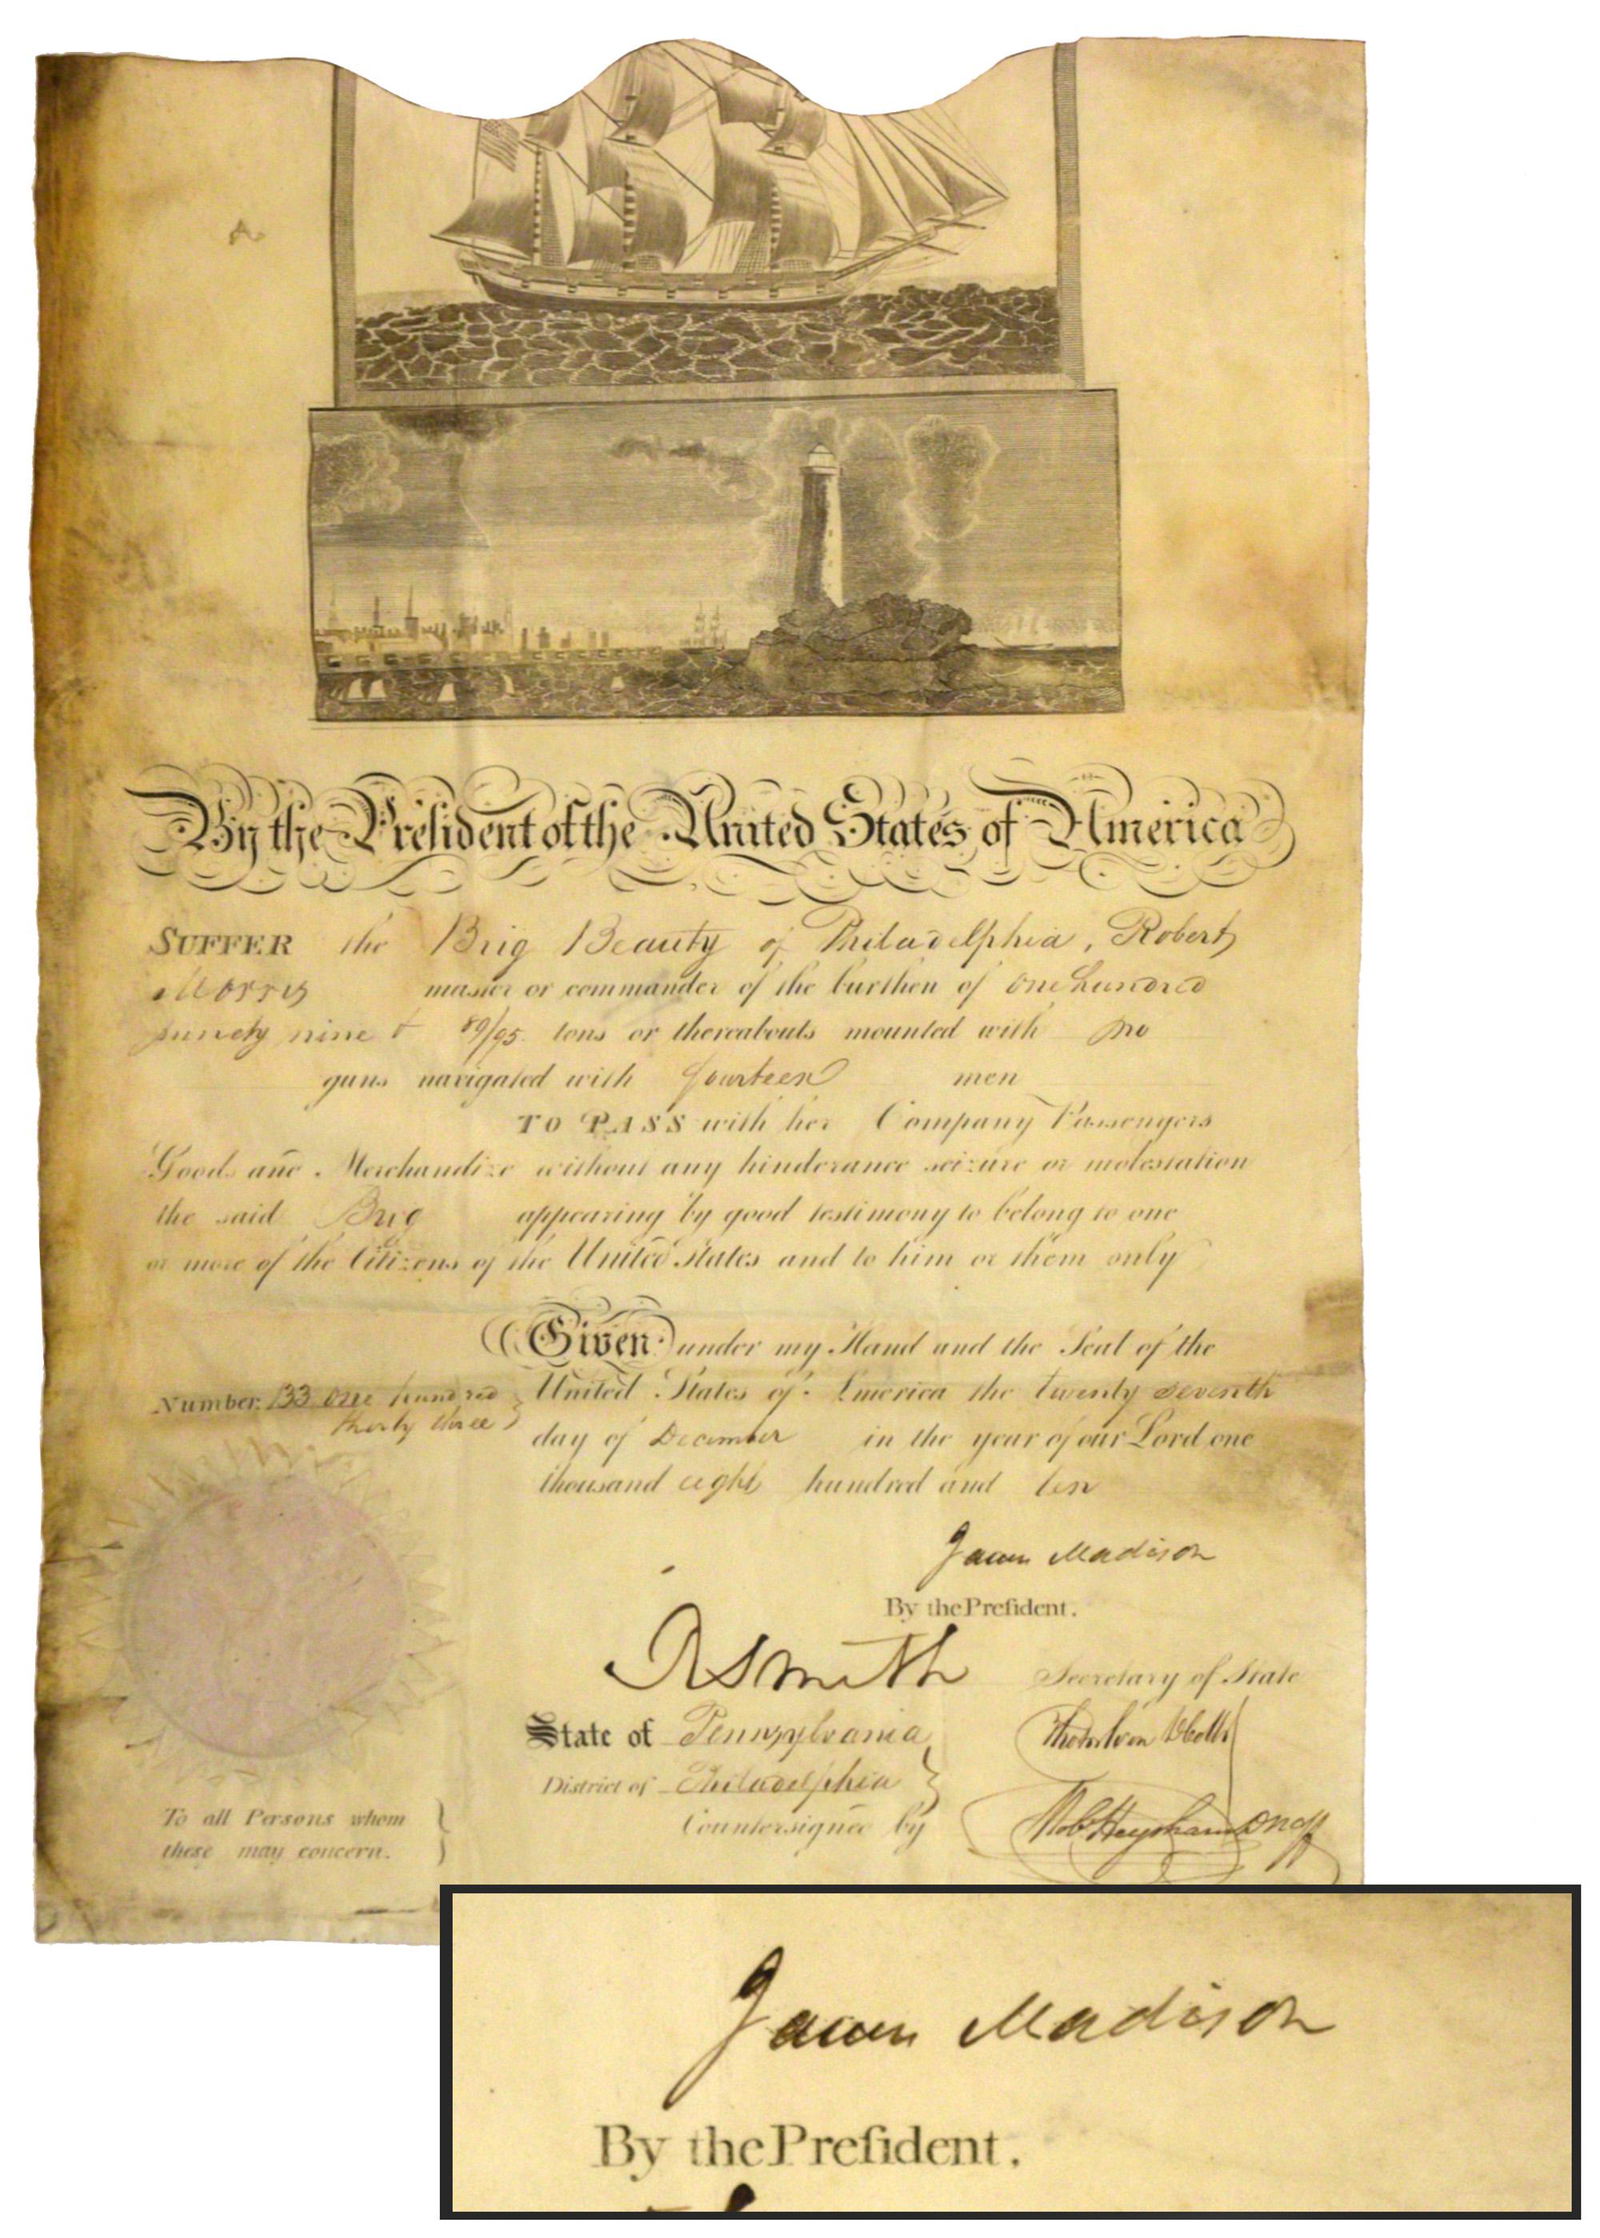 By the President of the United States of America
SUFFER the Brig Beauty of Philadelphia, Robert
Morris master or commander of the burthen of one hundred
ninety nine & 89/95 tons or thereabouts mounted with no
guns navigated with fourteen men
TO PASS with her Company Passengers
Goods and Merchandize without any hinderance seizure or molestation
the said Brig appearing by good testimony to belong to one
or more of the Citizens of the United States and to him or them only
Given under my Hand and the Seal of the
United States of America the twenty seventh
Number 133 one hundred
thirty three
day of December in the year of our Lord one
thousand eight hundred and ten
James Madison
By the Preſident.
R Smith Secretary of State
State of Pennsylvania
District of Philadelphia
Countersigned by
To all Persons whom
these may concern.
James Madison
By the Preſident.